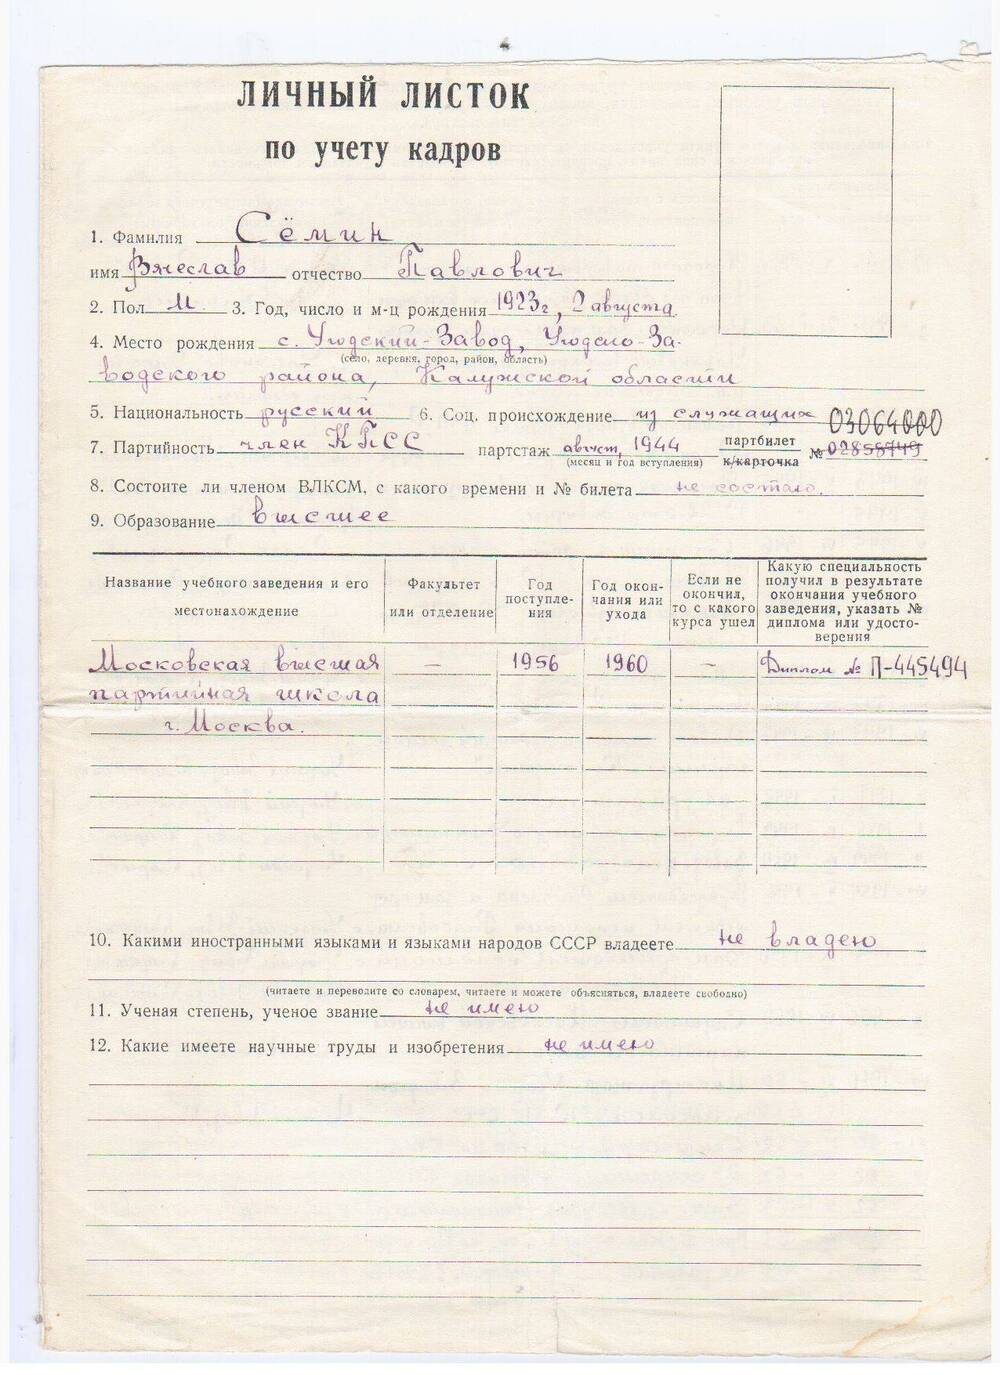 ЛИЧНЫЙ ЛИСТОК
по учету кадров
1. Фамилия Сёмин
имя Вячеслав отчество Павлович
2. Пол М. 3. Год, число и м-ц рождения 1923г, 2 августа.
4. Место рождения с. Угодский-Завод, Угодско-За-
(село, деревня, город, район, область)
водского района, Калужской области
5. Национальность русский 6. Соц. происхождение из служащих
03064000
7. Партийность член КПСС партстаж август, 1944 партбилет к/карточка № 02858749
(месяц и год вступления)
8. Состоите ли членом ВЛКСМ, с какого времени и № билета не состою.
9. Образование высшее
Название учебного заведения и его местонахождение
Факультет или отделение
Год поступле-
ния
Год окон-
чания или
ухода
Если не
окончил,
то с какого
курса ушел
Какую специальность
получил в результате
окончания учебного
заведения, указать №
диплома или удосто-
верения
Московская высшая — 1956 1960 — Диплом № П-445494
партийная школа
г. Москва.
10. Какими иностранными языками и языками народов СССР владеете не владею
(читаете и переводите со словарем, читаете и можете объясняться, владеете свободно)
11. Ученая степень, ученое звание не имею
12. Какие имеете научные труды и изобретения не имею